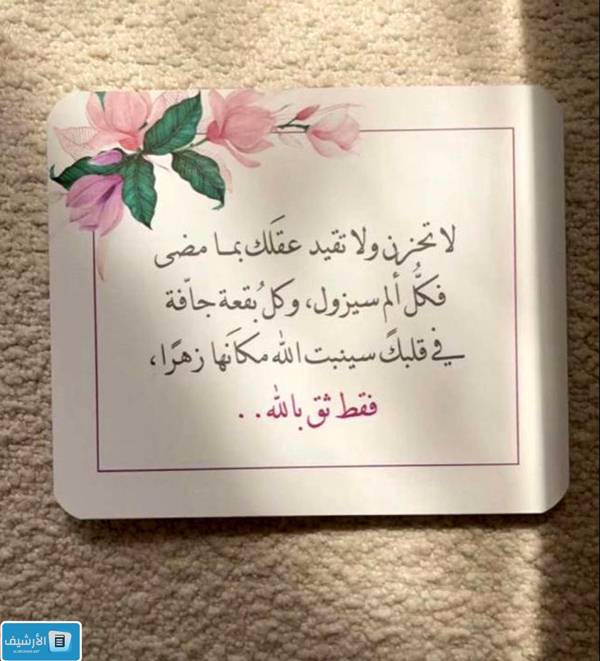 لا تحزن ولا تقيد عقَلك بما مضى
فكلُّ ألم سيزول، وكل بُقعة جافّة
في قلبكً سينبت الله مكاَنها زهرًا،
فقط ثق بالله..
الأرشيف